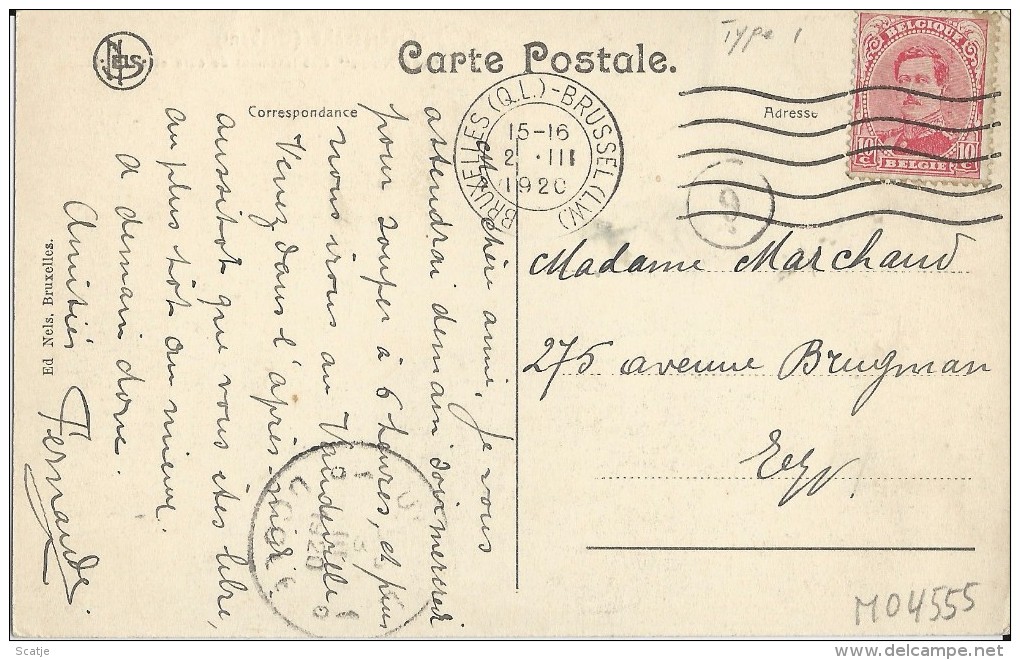 NELS
Carte Postale.
Type 1
BELGIQUE
10 C
10 C
BELGIË
Correspondance
Adresse
BRUXELLES (Q.L.)-BRUSSEL (L.W.)
15-16
2 III
1920
9
Ma chère amie, Je vous
attendrai demain soir mercredi
pour souper à 6 heures, et puis
nous irons au Vaudeville
Venez dans l'après-midi
aussitôt que vous êtes libre,
au plus tôt au mieux.
A demain donc.
Amitiés
Fernande.
Madame Marchand
275 avenue Brugman
3
III
1920
Ed Nels, Bruxelles.
M04555
Scatje
delcampe.net